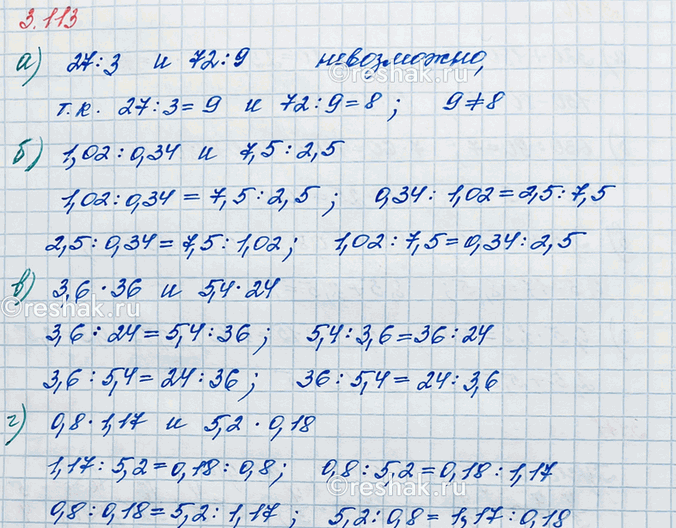 3.113
а) 27:3 и 72:9 невозможно,
т.к. 27:3=9 и 72:9=8; 9≠8
б) 1,02:0,34 и 7,5:2,5
1,02:0,34=7,5:2,5; 0,34:1,02=2,5:7,5
2,5:0,34=7,5:1,02; 1,02:7,5=0,34:2,5
в) 3,6·36 и 5,4·24
3,6:24=5,4:36; 5,4:3,6=36:24
3,6:5,4=24:36; 36:5,4=24:3,6
г) 0,8·1,17 и 5,2·0,18
1,17:5,2=0,18:0,8; 0,8:5,2=0,18:1,17
0,8:0,18=5,2:1,17; 5,2:0,8=1,17:0,18
©reshak.ru
©reshak.ru
©reshak.ru
©reshak.ru